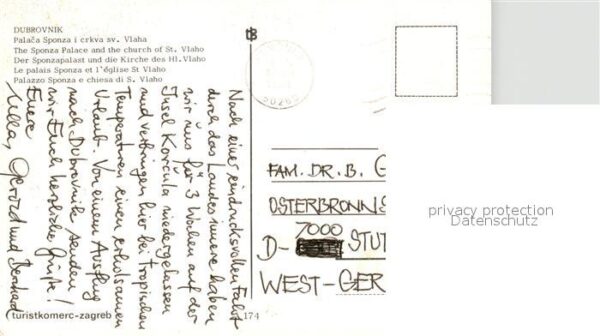 DUBROVNIK
Palača Sponza i crkva sv. Vlaha
The Sponza Palace and the church of St. Vlaho
Der Sponzapalast und die Kirche des Hl. Vlaho
Le palais Sponza et l'église St Vlaho
Palazzo Sponza e chiesa di S. Vlaho
Nach einer eindrucksvollen Fahrt
durch das Landesinnere haben
wir uns für 3 Wochen auf der
Insel Korčula niedergelassen
und verbringen hier bei tropischen
Temperaturen einen erholsamen
Urlaub. Von einem Ausflug
nach Dubrovnik senden
wir Euch herzliche Grüße!
Euere
Ulla, Gerold und
FAM. DR. B. G
OSTERBRONNS
D-7000 STUT
WEST-GER
privacy protection
Datenschutz
turistkomerc-zagreb
174